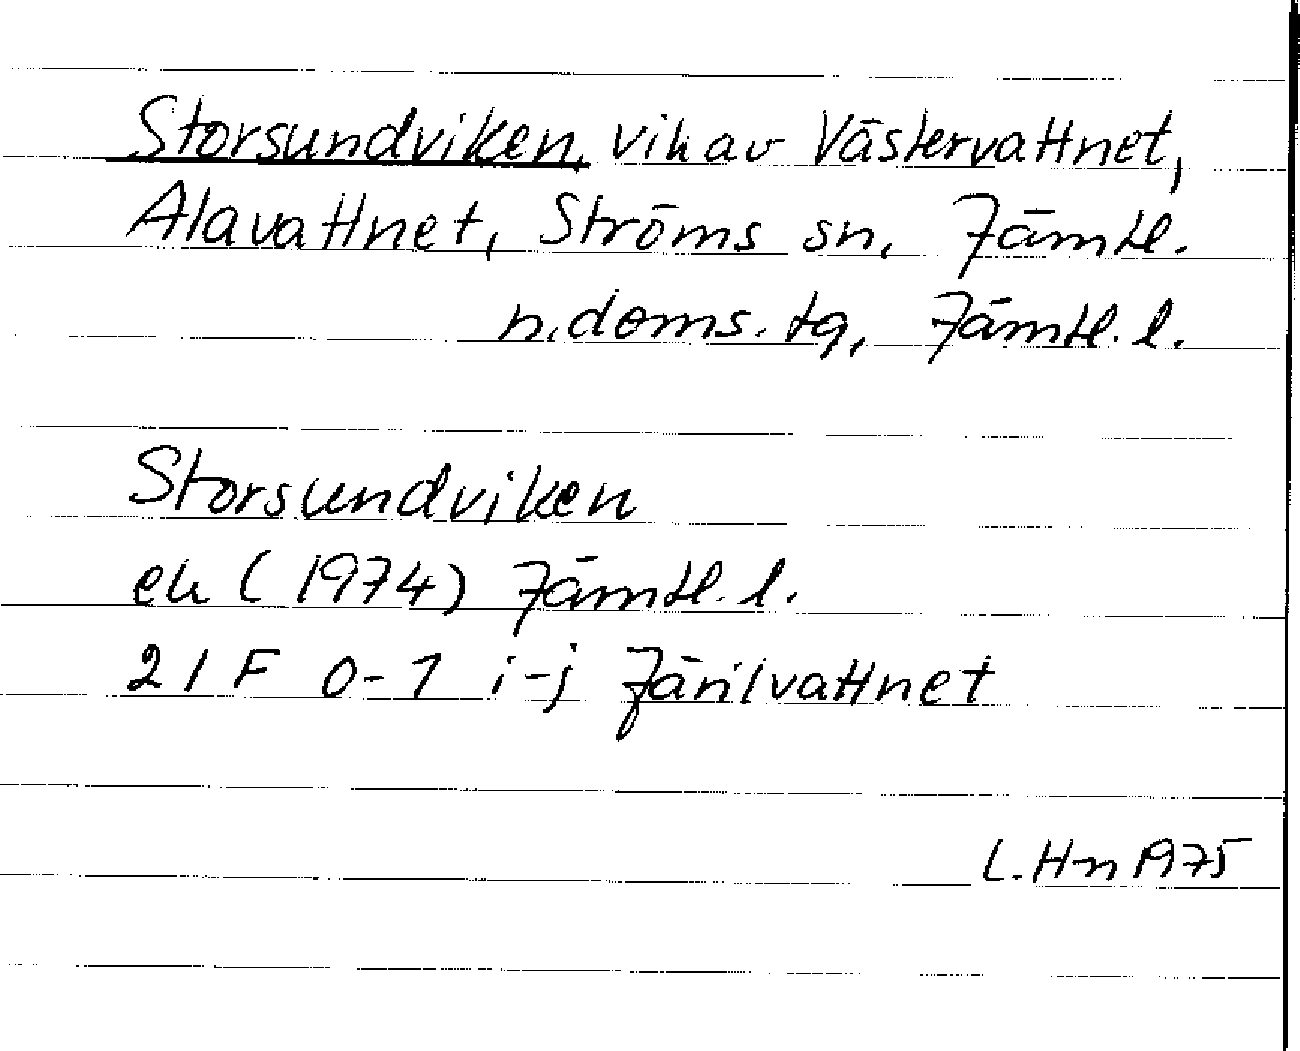 Storsundviken, vik av Västervattnet,
Alavattnet, Ströms sn, Jämtl.
n. doms. tg, Jämtl. l.
Storsundviken
ek (1974) Jämtl. l.
21 F 0-1 i-j Järilvattnet
L. Hn 1975